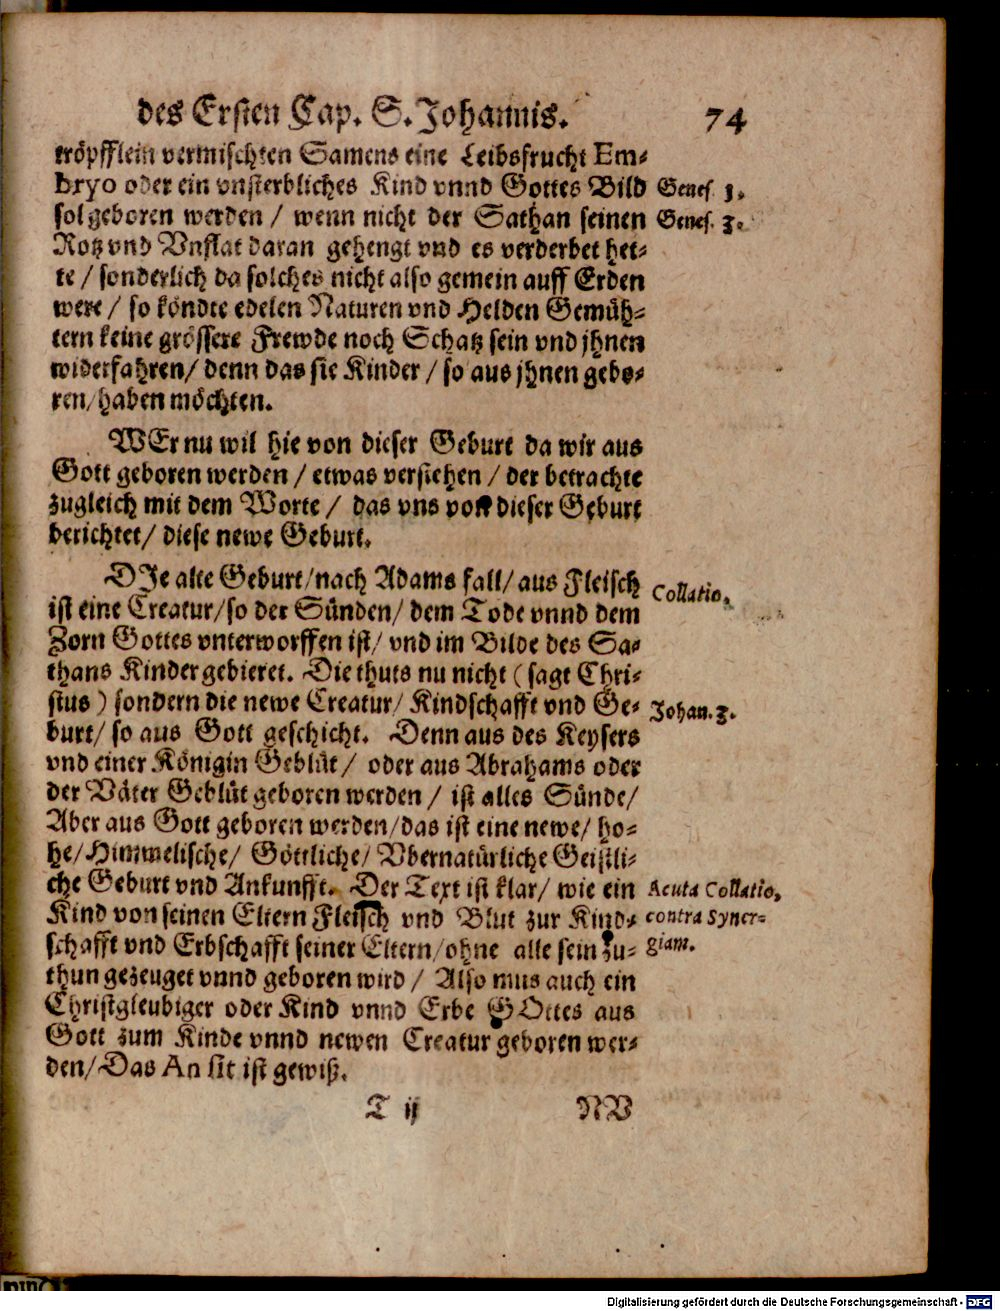 des Ersten Cap. S. Johannis. 74
tröpfflein vermischten Samens eine Leibsfrucht Em-
bryo oder ein vnsterbliches Kind vnnd Gottes Bild
Genes. 1.
sol geboren werden / wenn nicht der Sathan seinen
Genes. 3.
Rotz vnd Vnflat daran gehengt vnd es verderbet het-
te / sonderlich da solches nicht also gemein auff Erden
were / so köndte edelen Naturen vnd Helden Gemüh-
tern keine grössere Frewde noch Schatz sein vnd jhnen
widerfahren / denn das sie Kinder / so aus jhnen gebo-
ren / haben möchten.
WEr nu wil hie von dieser Geburt da wir aus
Gott geboren werden / etwas verstehen / der betrachte
zugleich mit dem Worte / das vns von dieser Geburt
berichtet / diese newe Geburt.
DIe alte Geburt / nach Adams fall / aus Fleisch
Collatio.
ist eine Creatur / so der Sünden / dem Tode vnnd dem
Zorn Gottes vnterworffen ist / vnd im Bilde des Sa-
thans Kinder gebieret. Die thuts nu nicht ( sagt Chri-
stus ) sondern die newe Creatur / Kindschafft vnd Ge-
Johan. 3.
burt / so aus Gott geschicht. Denn aus des Keysers
vnd einer Königin Geblüt / oder aus Abrahams oder
der Väter Geblüt geboren werden / ist alles Sünde /
Aber aus Gott geboren werden / das ist eine newe / ho-
he / Himmelische / Göttliche / Vbernatürliche Geistli-
che Geburt vnd Ankunfft. Der Text ist klar / wie ein
Acuta Collatio,
Kind von seinen Eltern Fleisch vnd Blut zur Kind-
contra Syner-
schafft vnd Erbschafft seiner Eltern / ohne alle sein zu-
giam.
thun gezeuget vnnd geboren wird / Also mus auch ein
Christgleubiger oder Kind vnnd Erbe GOttes aus
Gott zum Kinde vnnd newen Creatur geboren wer-
den / Das An sit ist gewiß.
T ij NV
Digitalisierung gefördert durch die Deutsche Forschungsgemeinschaft - DFG